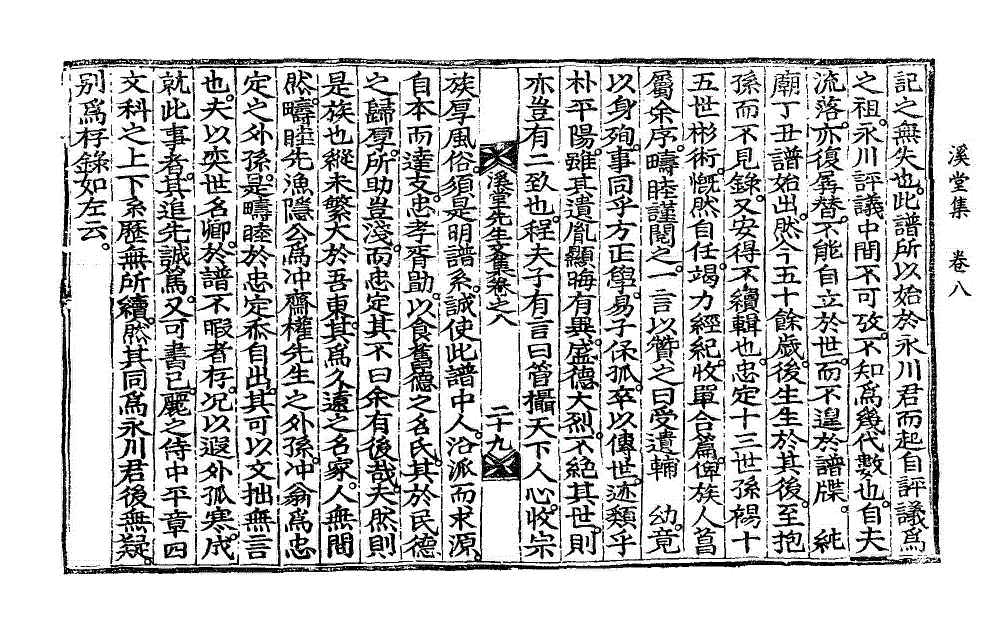 溪堂集　卷八
記之無失也。此譜所以始於永川君而起自評議爲
之祖。永川評議中間不可攷。不知爲幾代數也。自夫
流落。亦復孱替。不能自立於世。而不遑於譜牒。　純
廟丁丑譜始出。然今五十餘歲。後生生於其後。至抱
孫而不見錄。又安得不續輯也。忠定十三世孫禓十
五世彬術。慨然自任。竭力經紀。收單合篇。俾族人萺
屬余序。疇睦謹閱之。一言以贊之曰受遺輔　幼。竟
以身殉。事同乎方正學。易子保孤。卒以傳世。迹類乎
朴平陽。雖其遺胤顯晦有異。盛德大烈。不絕其世。則
亦豈有二致也。程夫子有言曰管攝天下人心。收宗
溪堂先生文集卷之八
二十九
族厚風俗。須是明譜系。誠使此譜中人。沿派而求源。
自本而達支。忠孝胥勖。以食舊德之名氏。其於民德
之歸厚。所助豈淺。而忠定其不曰余有後哉。夫然則
是族也縱未繁大於吾東。其爲久遠之名家。人無間
然。疇睦先漁隱公爲冲齋權先生之外孫。冲翁爲忠
定之外孫。是疇睦於忠定忝自出。其可以文拙無言
也。夫以奕世名卿。於譜不暇者存。况以遐外孤寒。成
就此事者。其追先誠爲。又可書已。麗之侍中平章四
文科之上下系歷無所續。然其同爲永川君後無疑。
別爲存錄如左云。